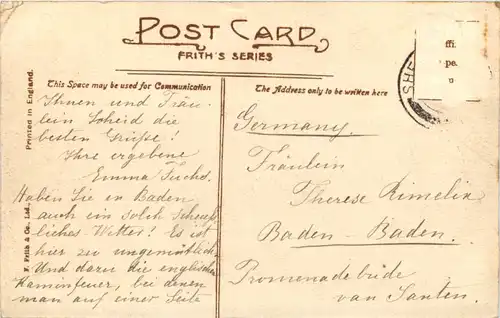 POST CARD
FRITH'S SERIES
This Space may be used for Communication
The Address only to be written here
Printed in England.
F. Frith & Co., Ltd.
Ihnen und Fräu-
lein Scheid die
besten Grüße!
Ihre ergebene
Emma Fuchs.
Haben Sie in Baden
auch ein solch scheuß-
liches Wetter! Es ist
hier zu ungemütlich.
Und dazu die englischen
Kaminfeuer, bei denen
man auf einer Seite
Germany.
Fräulein
Therese Rimelin
Baden-Baden.
Promenade
van Santen.
SHE
ffi.
pe.